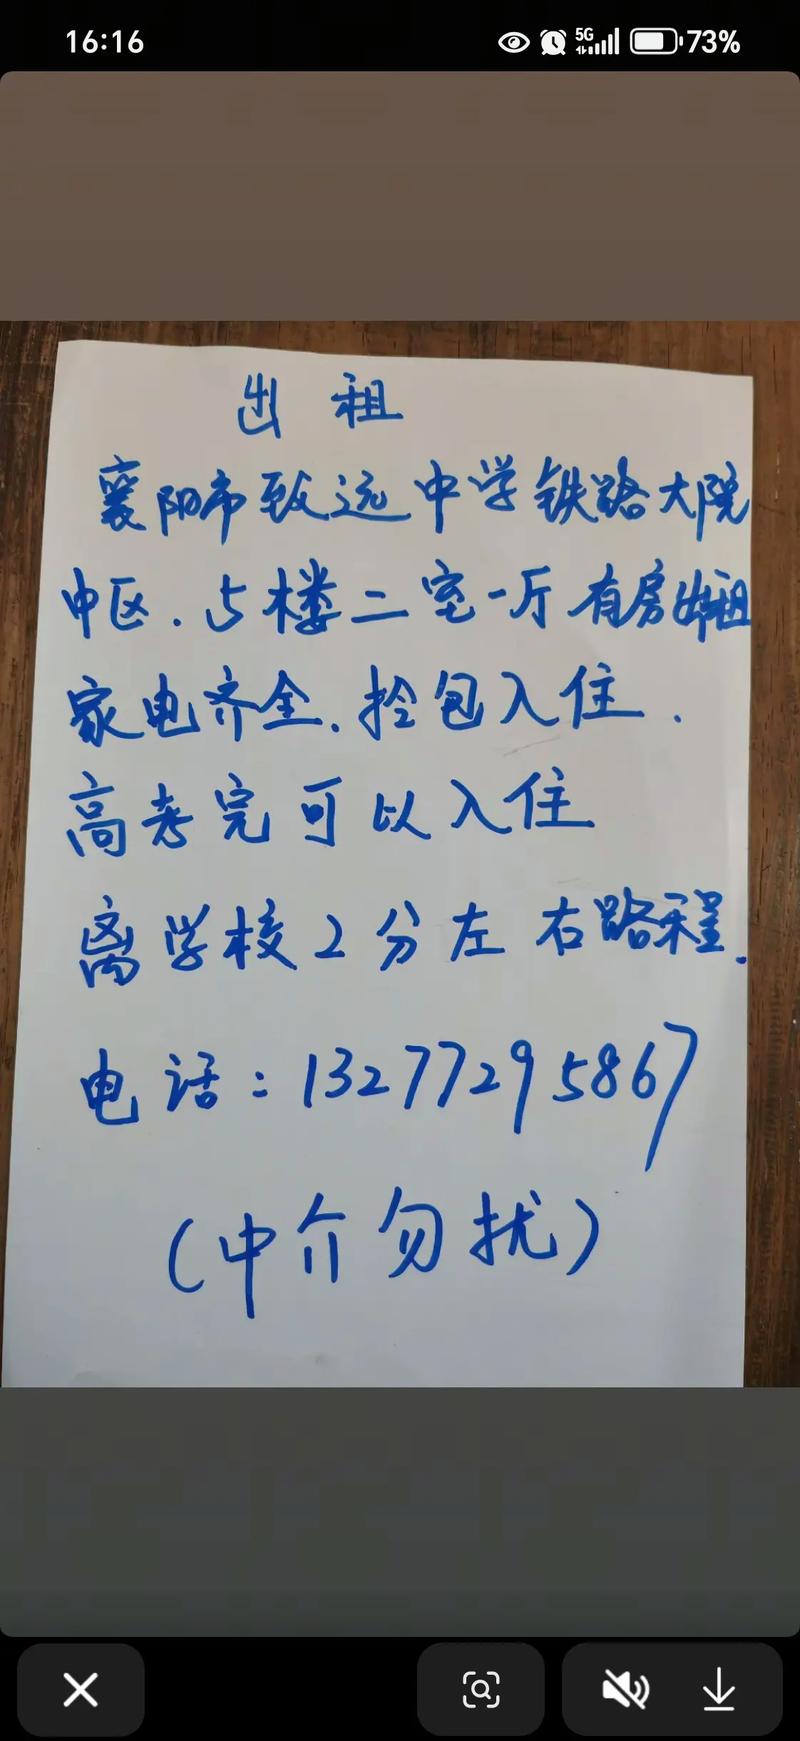 16:16
5G
73%
出租
襄阳市致远中学铁路大院
中区.5楼二室一厅有房出租
家电齐全.拎包入住.
高考完可以入住
离学校2分左右路程.
电话:13277295867
(中介勿扰)